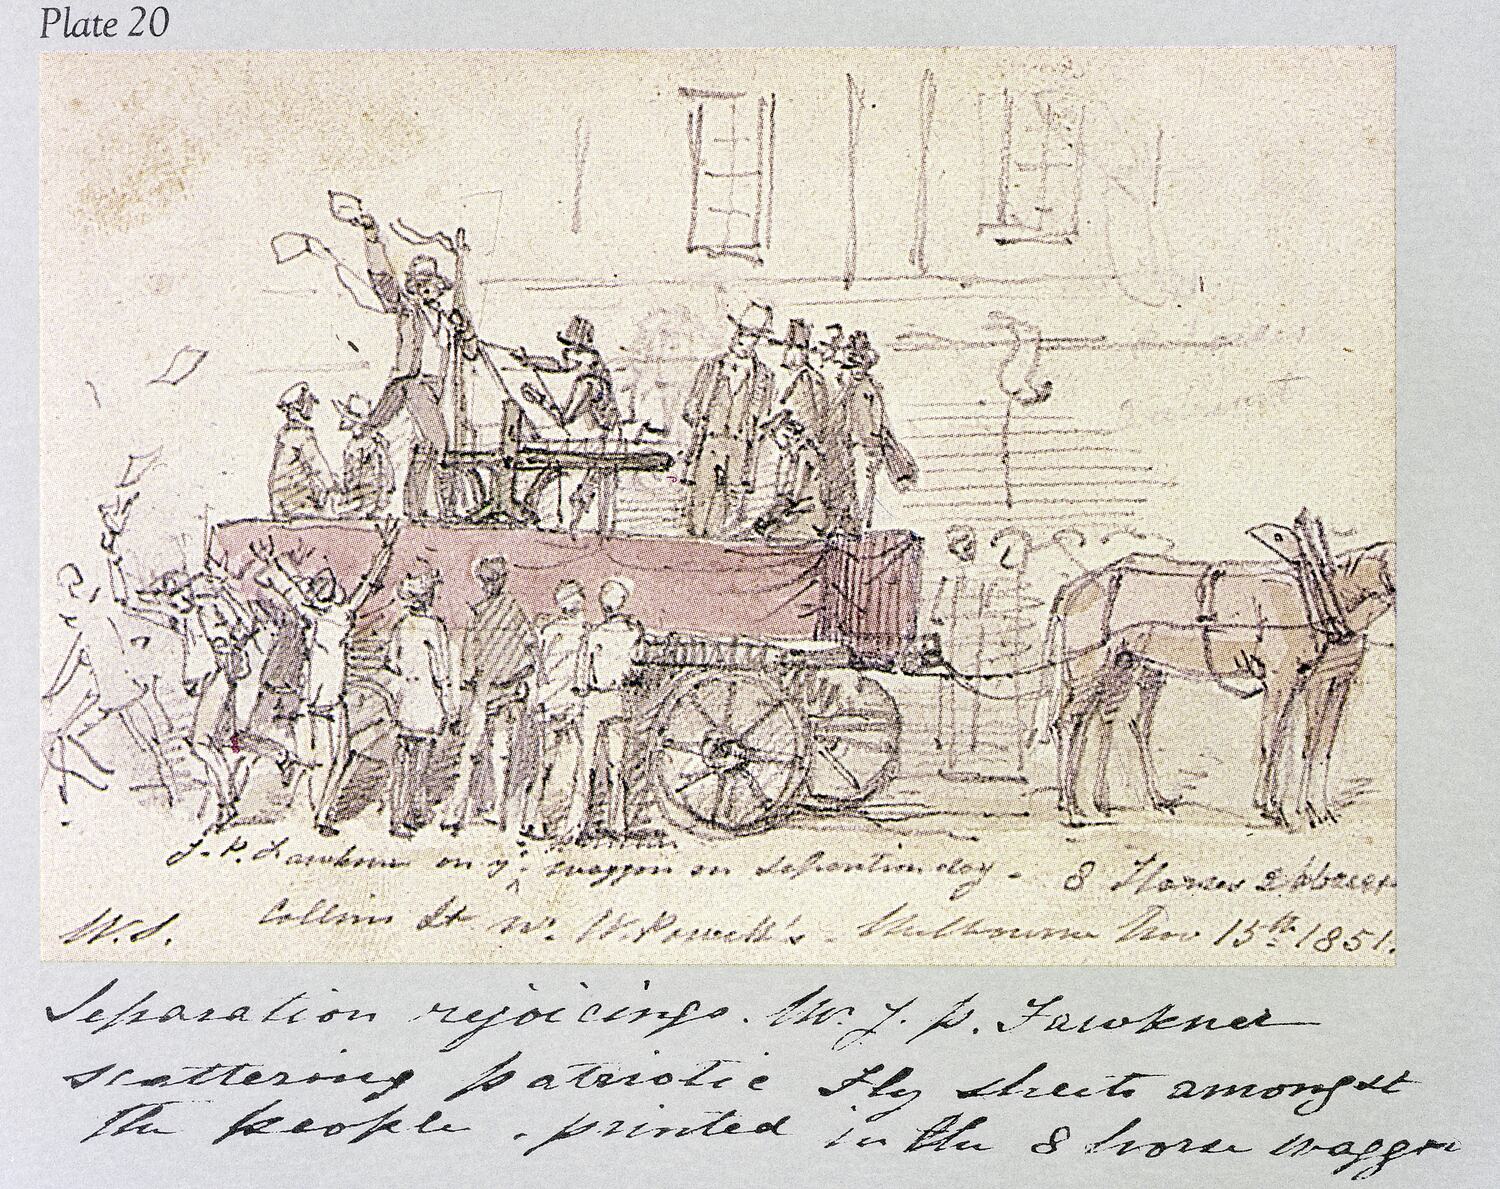 Plate 20
J. P. Fawkner on ye waggon on separation day - 8 Horses
W.S. Collins St nr. W. Powell's - Melbourne Nov 15th 1851.
Separation rejoicings. Mr. J. P. Fawkner
scattering patriotic Fly sheets amongst
the people, printed in the 8 horse waggon